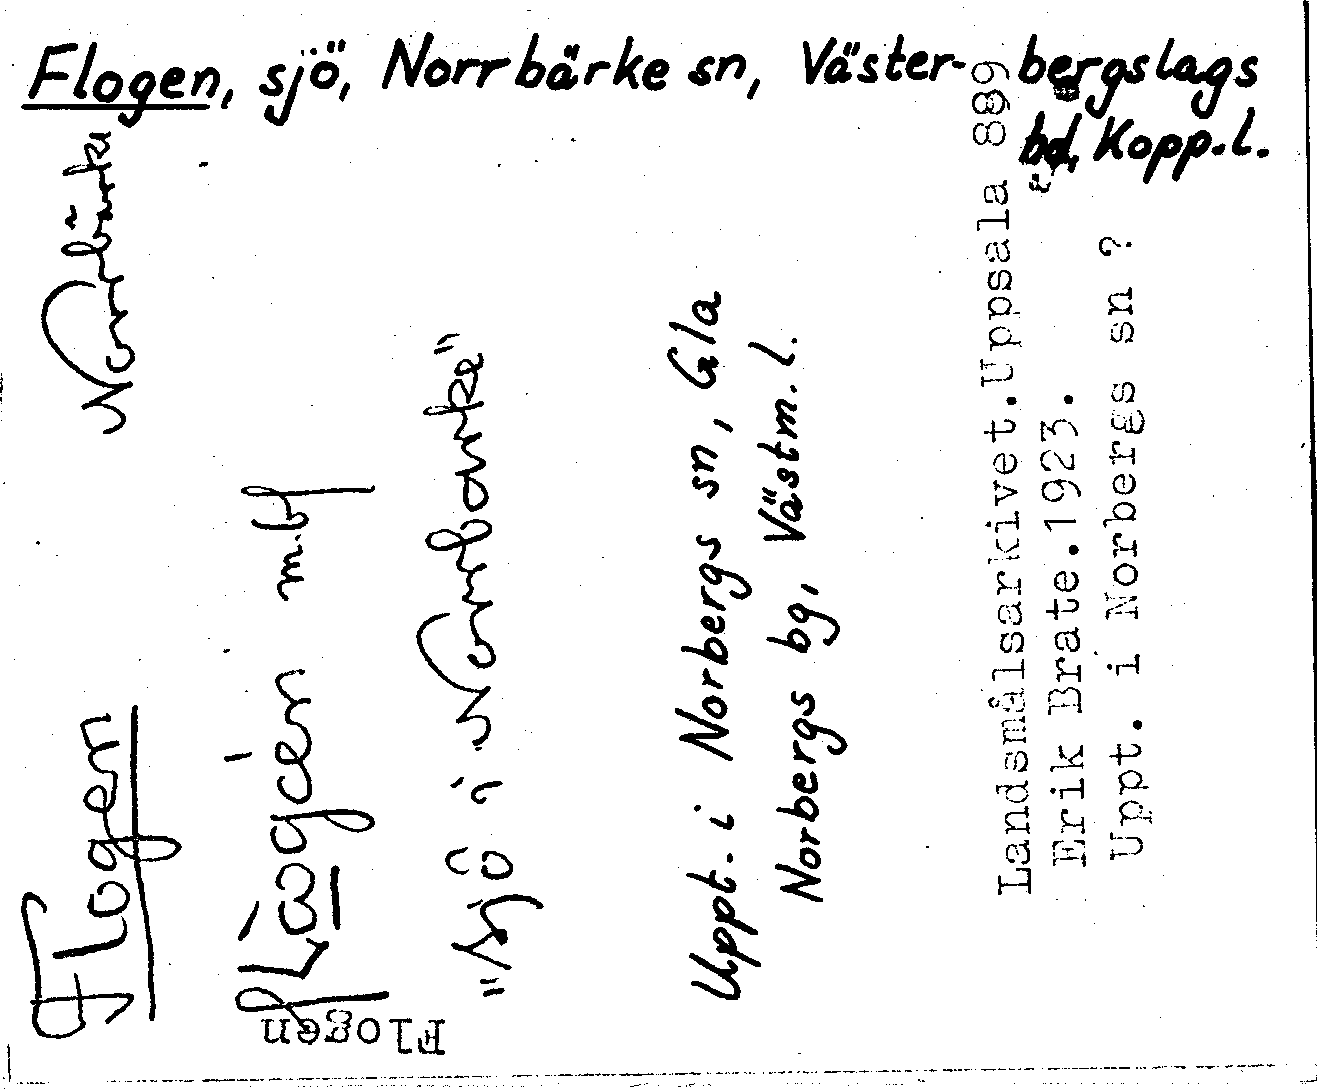 Flogen, sjö, Norrbärke sn, Väster- bergslags
bd, Kopp.l.
Flogen Norrbärke
m.bf
"sjö i Norrbärke"
Uppt. i Norbergs sn, Gla
Norbergs bg, Västm.l.
Landsmålsarkivet.Uppsala 889
Erik Brate.1923.
Uppt. i Norbergs sn ?
Flogen